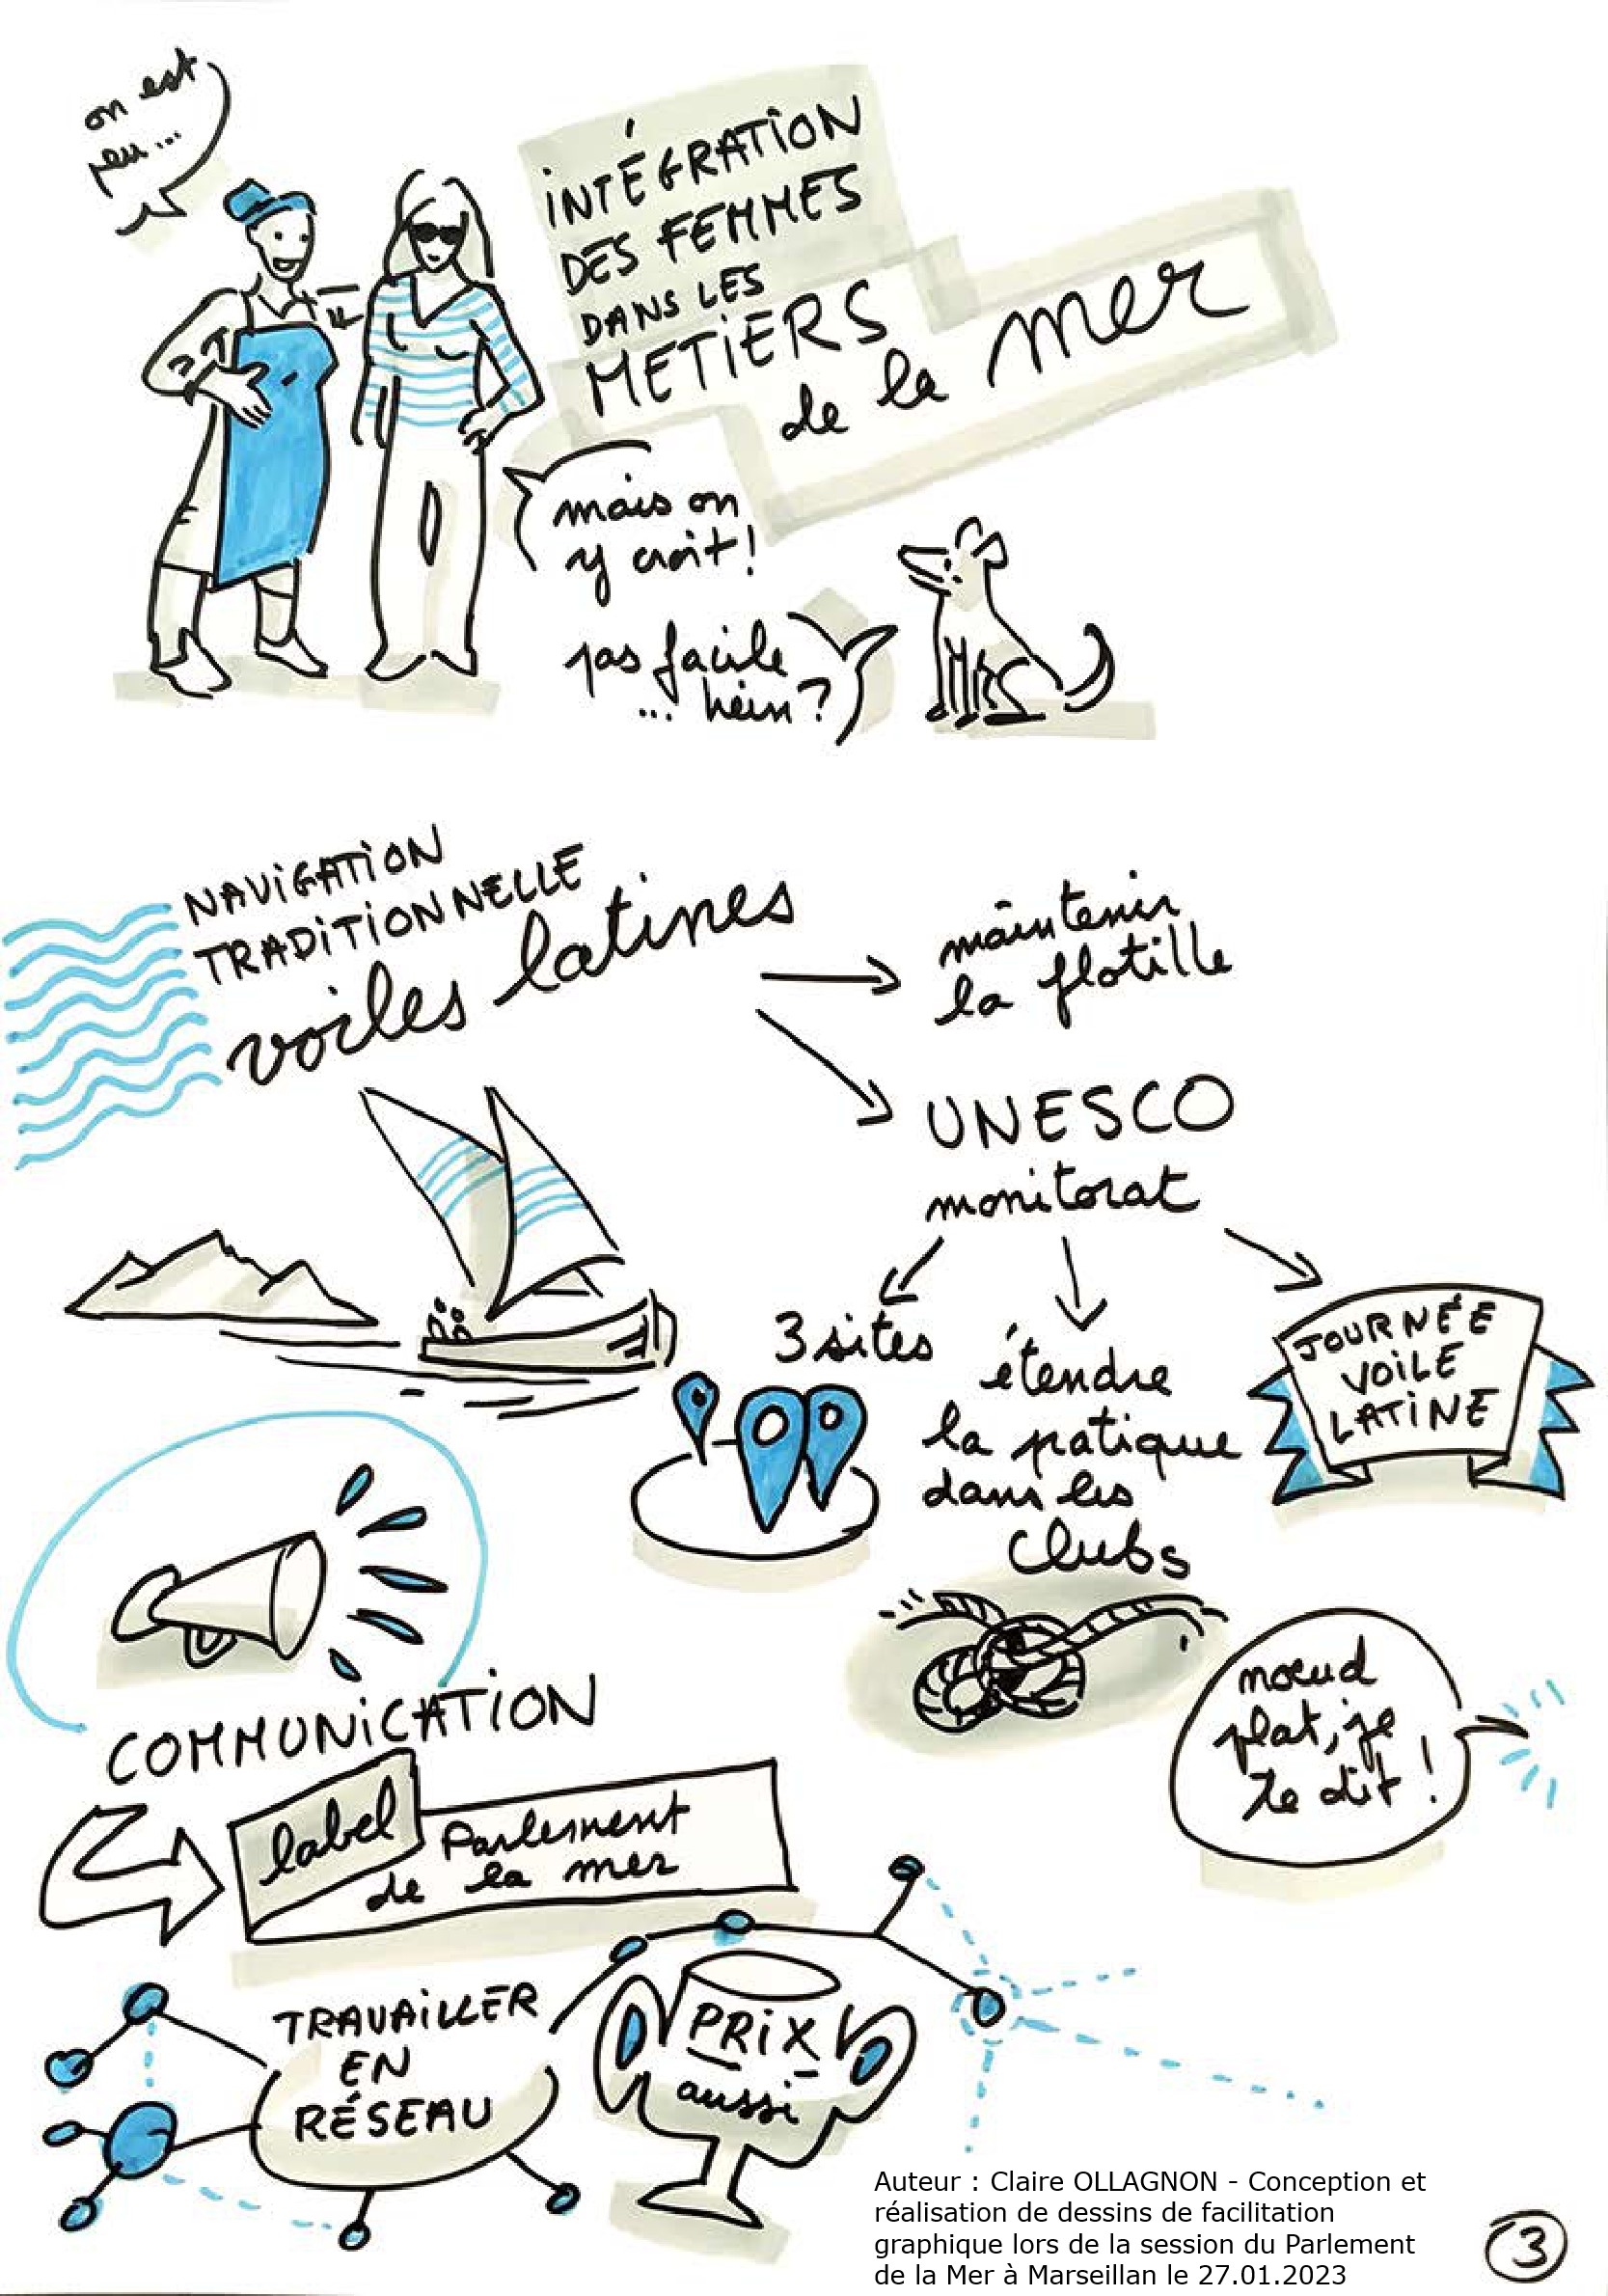 on est
peu...
iNTÉGRATiON
DES FEMMES
DANS LES
METiERS
de la mer
mais on
y croit!
pas facile
... hein?
NAViGATiON
TRADiTiONNELLE
voiles latines
maintenir
la flotille
UNESCO
monitorat
3 sites
étendre
la pratique
dans les
clubs
JOURNÉE
VOiLE
LATiNE
nœud
plat, je
te dit !
COMMUNiCATiON
label Parlement
de la mer
TRAVAiLLER
EN
RÉSEAU
PRiX
aussi
Auteur : Claire OLLAGNON - Conception et
réalisation de dessins de facilitation
graphique lors de la session du Parlement
de la Mer à Marseillan le 27.01.2023
3